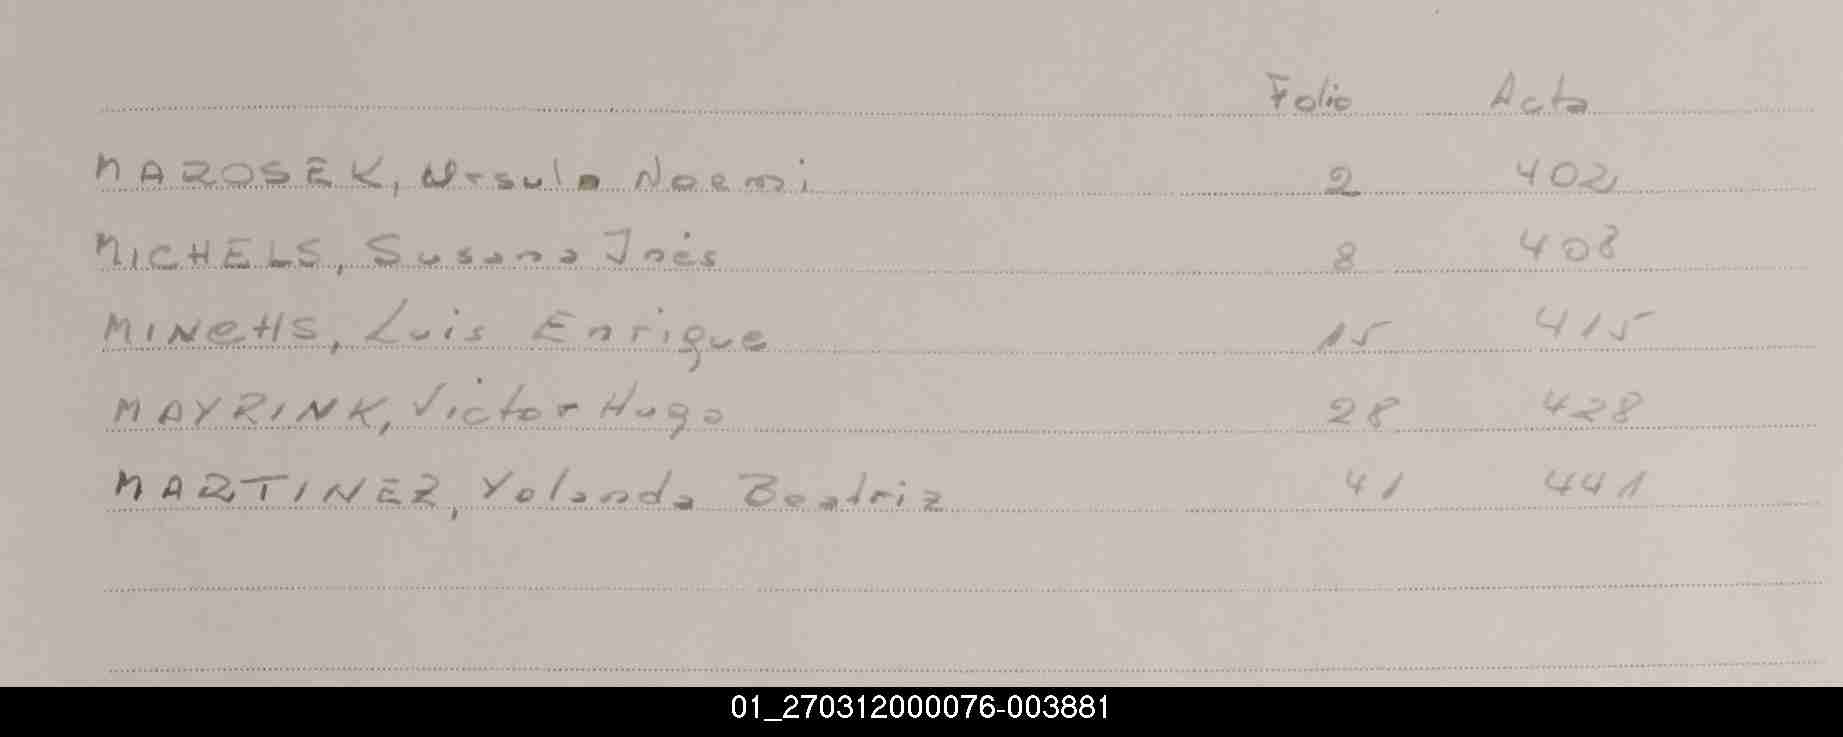 Folio Acta
MAROSEK, Ursula Noemi 2 402
MICHELS, Susana Inés 8 408
MINCHS, Luis Enrique 15 415
MAYRINK, Victor Hugo 28 428
MARTINEZ, Yolanda Beatriz 41 441
01_270312000076-003881